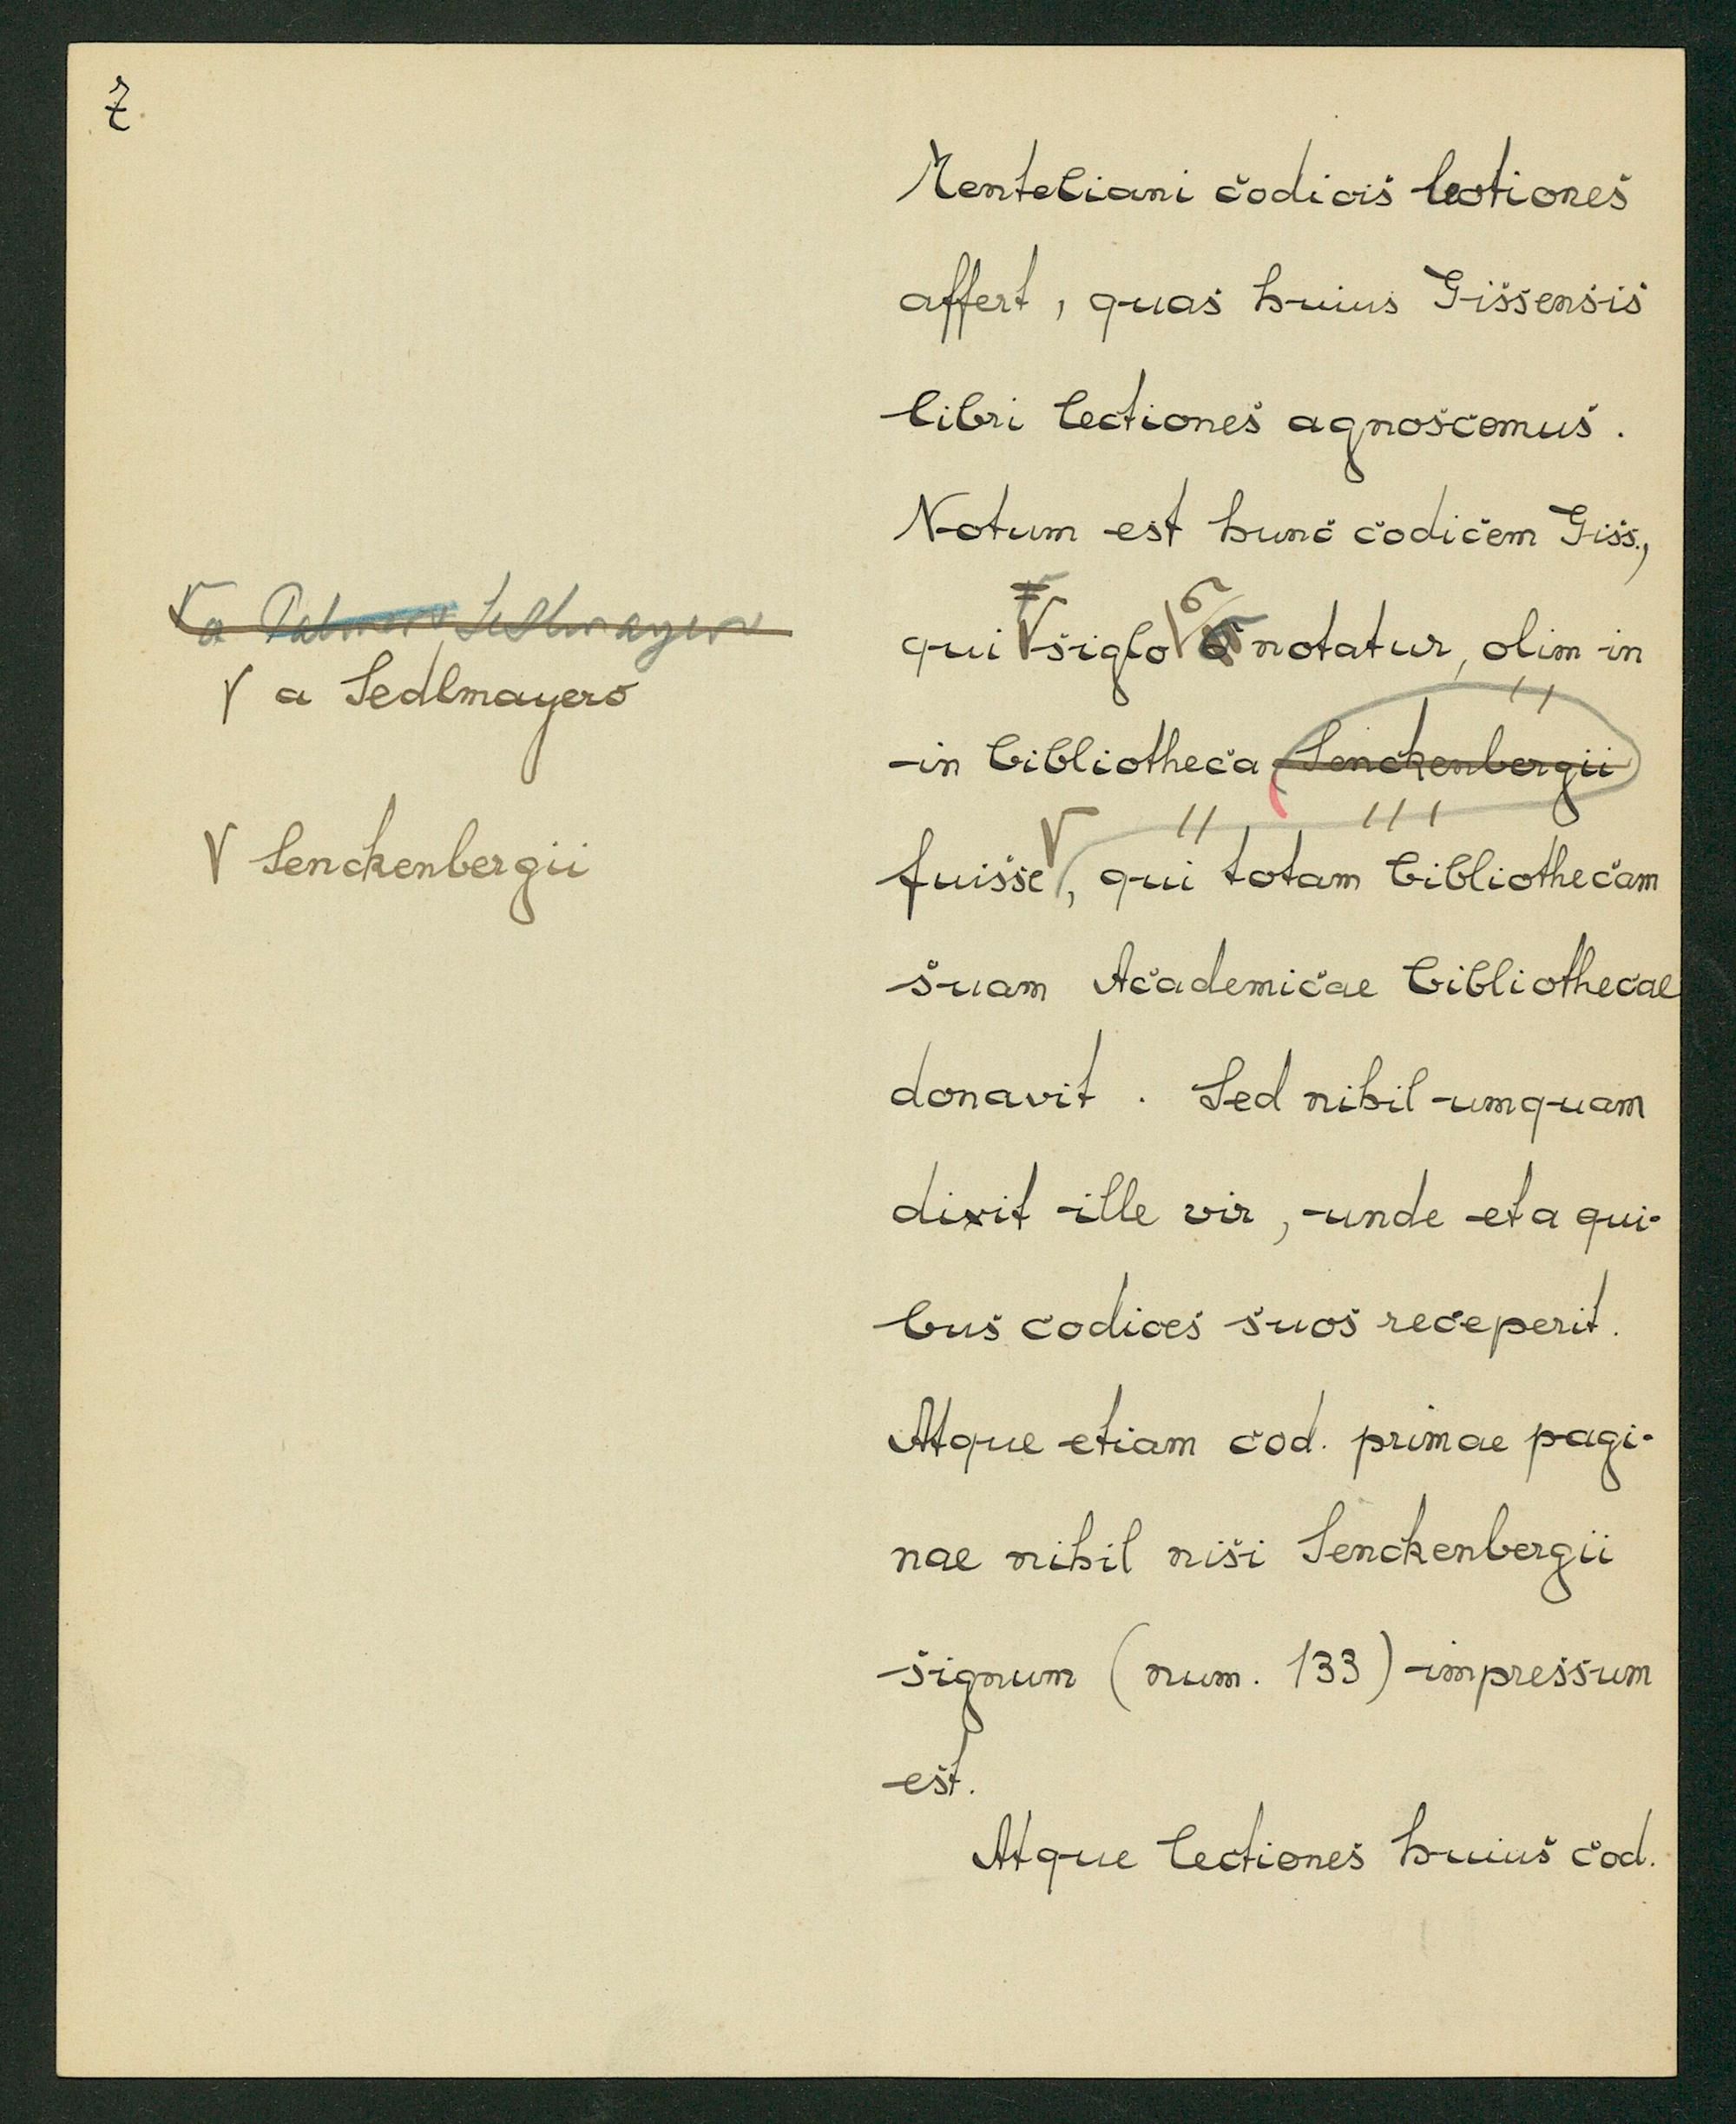 7.
Menteliani codicis lectiones
affert, quas huius Gissensis
libri lectiones agnoscemus.
Notum est hunc codicem Giss.,
qui siglo σ notatur, olim in
in bibliotheca Senckenbergii
fuisse, qui totam bibliothecam
suam Academicae bibliothecae
donavit. Sed nihil umquam
dixit ille vir, unde et a qui-
bus codices suos receperit.
Atque etiam cod. primae pagi-
nae nihil nisi Senckenbergii
signum (num. 133) impressum
est.
Atque lectiones huius cod.
a Sedlmayero
√ a Sedlmayero
√ Senckenbergii